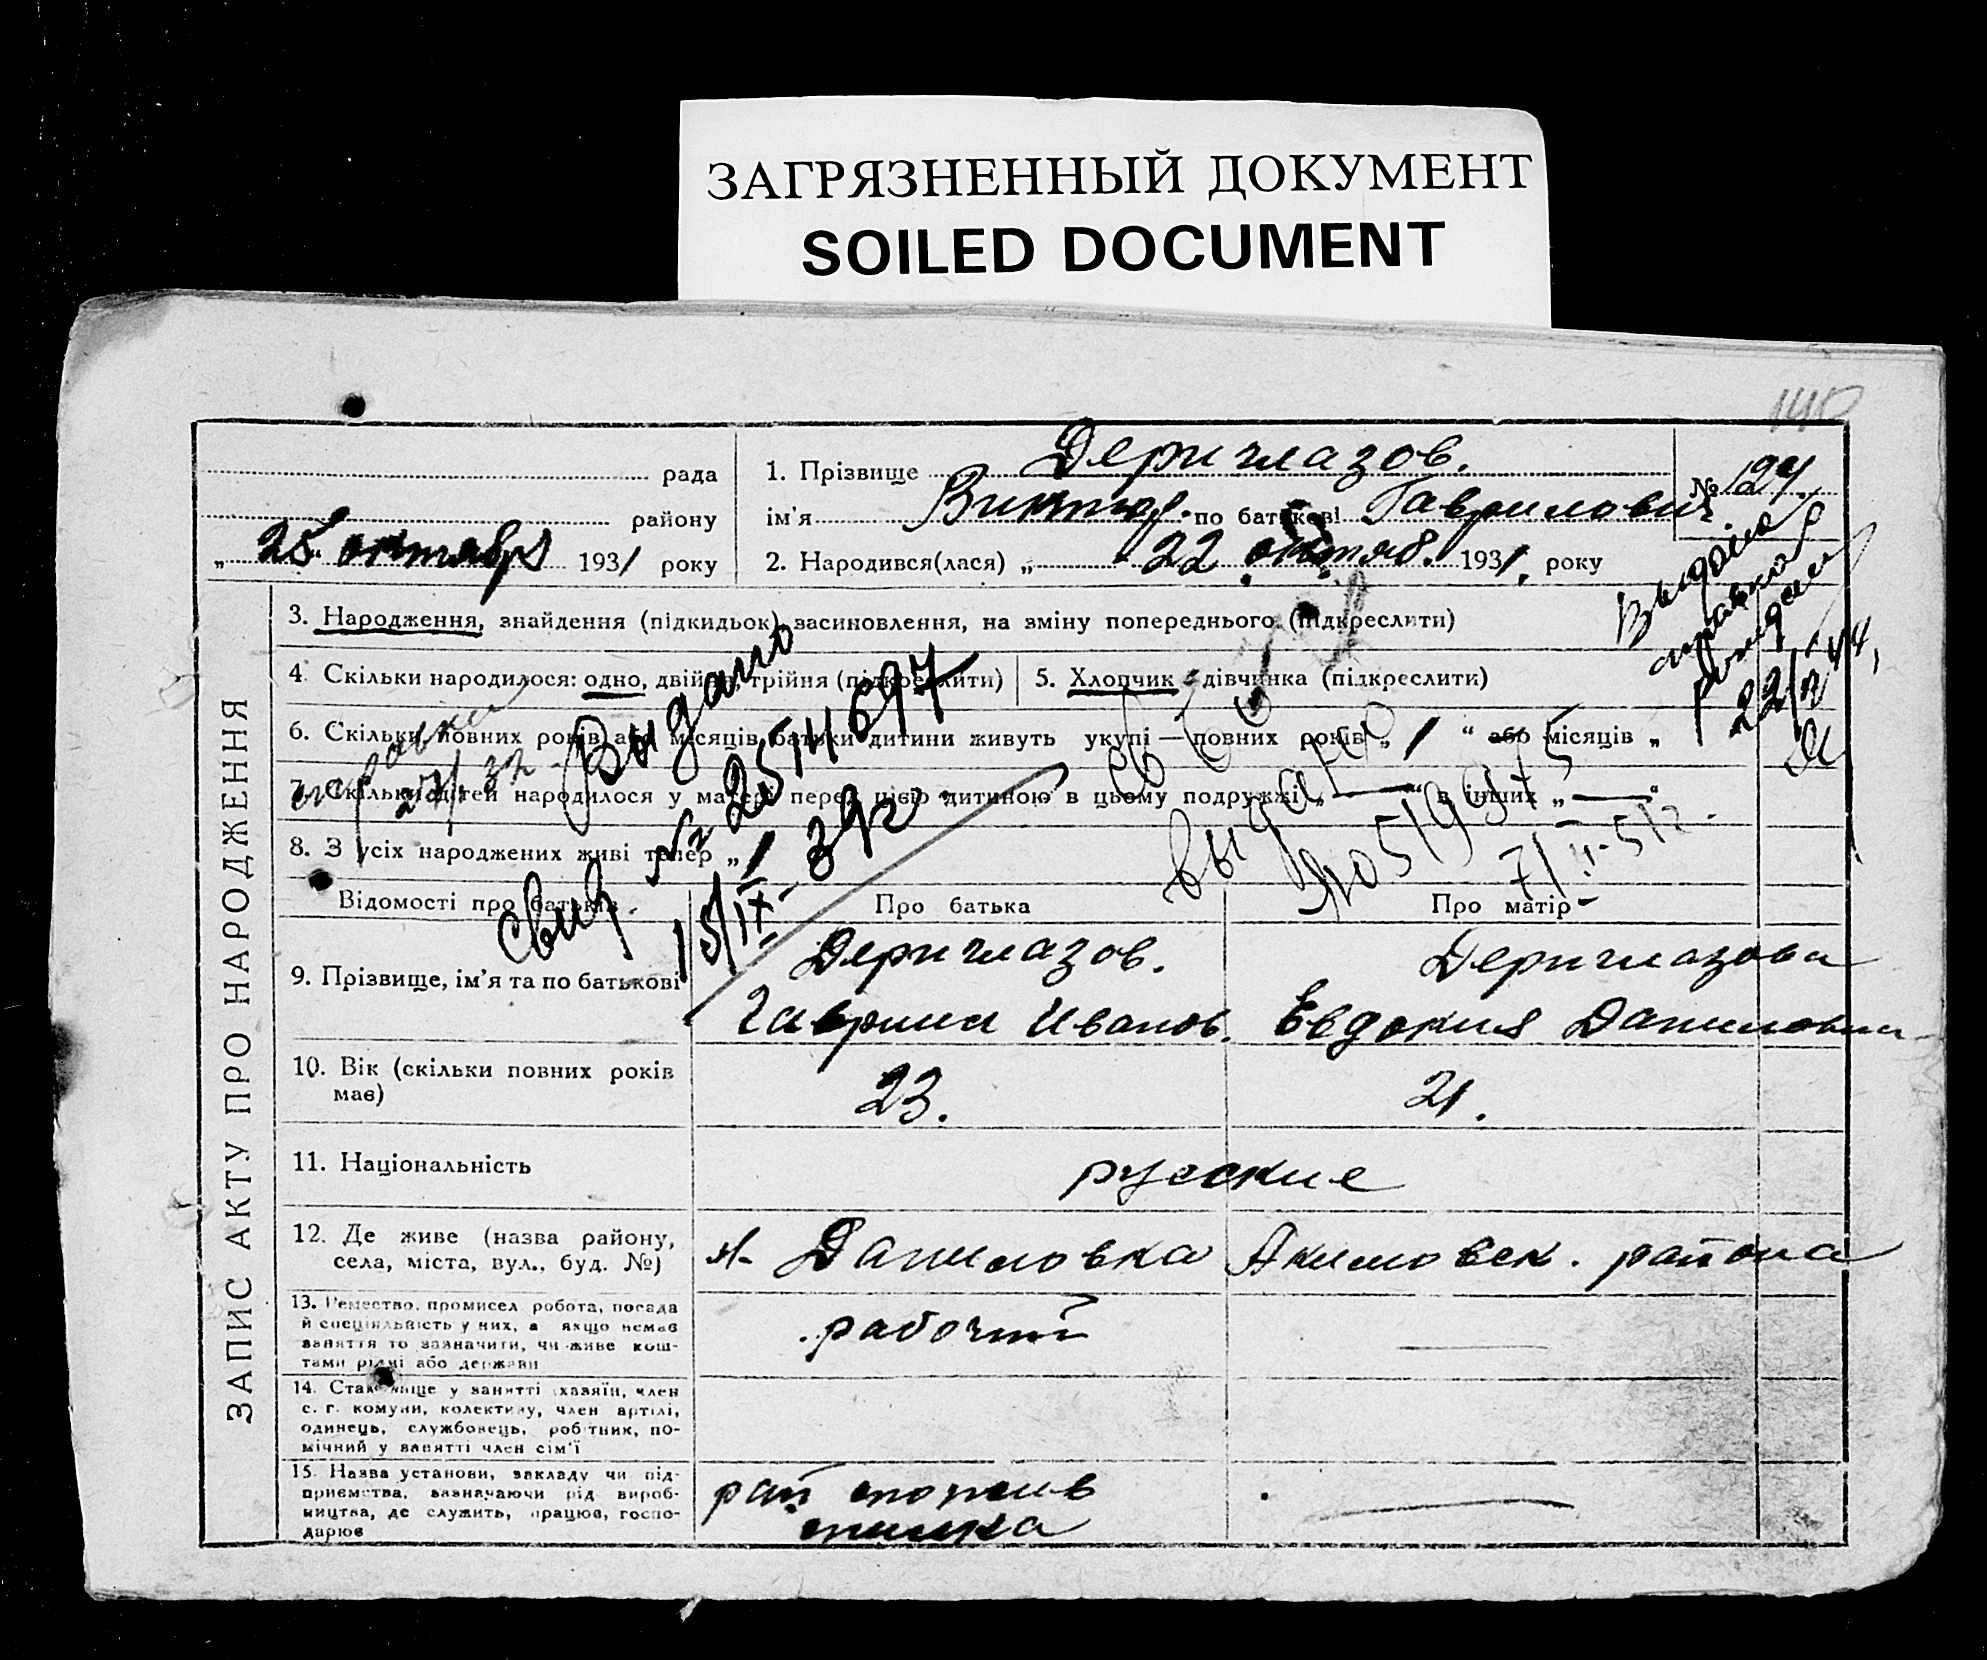 ЗАГРЯЗНЕННЫЙ ДОКУМЕНТ
SOILED DOCUMENT
140
рада
району
„25 октября 1931 року
1. Прізвище Дериглазов.
ім'я Виктор. по батькові Гаврилович
2. Народився(лася) „22 октяб. 1931. року
№ 127
ЗАПИС АКТУ ПРО НАРОДЖЕННЯ
3. Народження, знайдення (підкидьок) засиновлення, на зміну попереднього (підкреслити)
4. Скільки народилося: одно, двійня, трійня (підкреслити)
5. Хлопчик - дівчинка (підкреслити)
6. Скільки повних років або місяців батьки дитини живуть укупі — повних років „1“ або місяців „
7. Скільки дітей народилося у матері перед цією дитиною в цьому подружжі „—“ в інших „—“
8. З усіх народжених живі тепер „1
Выдано
свид № 2514697
15/IX - 39г
справка
выдано
№ 0519975
7/II-51г.
Выдано
справка
22/ 44
Відомості про батьків
Про батька
Про матір
9. Прізвище, ім'я та по батькові
Дериглазов.
Гаврил Иванов.
Дериглазова
Евдокия Даниловна
10. Вік (скільки повних років має)
23.
21.
11. Національність
русские
12. Де живе (назва району,
села, міста, вул., буд. №)
Даниловка Акимовск. района
13. Ремество, промисел робота, посада
й спеціяльність у них, а якщо немає
заняття то зазначити, чи живе кош-
тами рідні або держави
рабочий
14. Становище у занятті хазяїн, член
с. г. комуни, колективу, член артілі,
одинець, службовець, робітник, по-
мічний у занятті член сім'ї
15. Назва установи, закладу чи під-
приємства, зазначаючи рід вироб-
ництва, де служить, працює, госпо-
дарює
рай